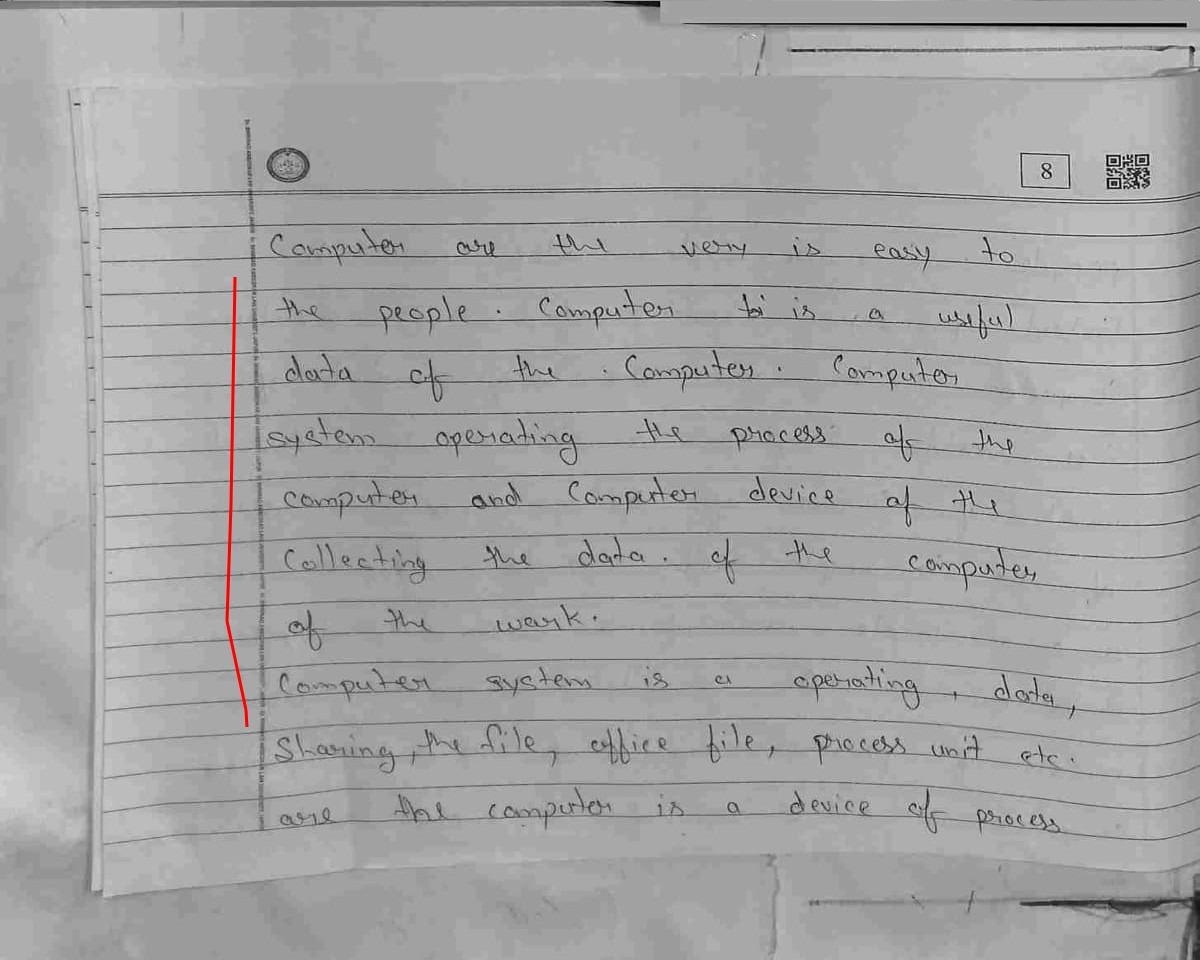 8
Computer are the very is easy to
the people. Computer is a useful
data of the . Computer. Computer
system operating the process of the
computer and Computer device of the
Collecting the data. of the computer
of the work.
Computer system is a operating, data,
Sharing, the file, office file, process unit etc.
are the computer is a device of process